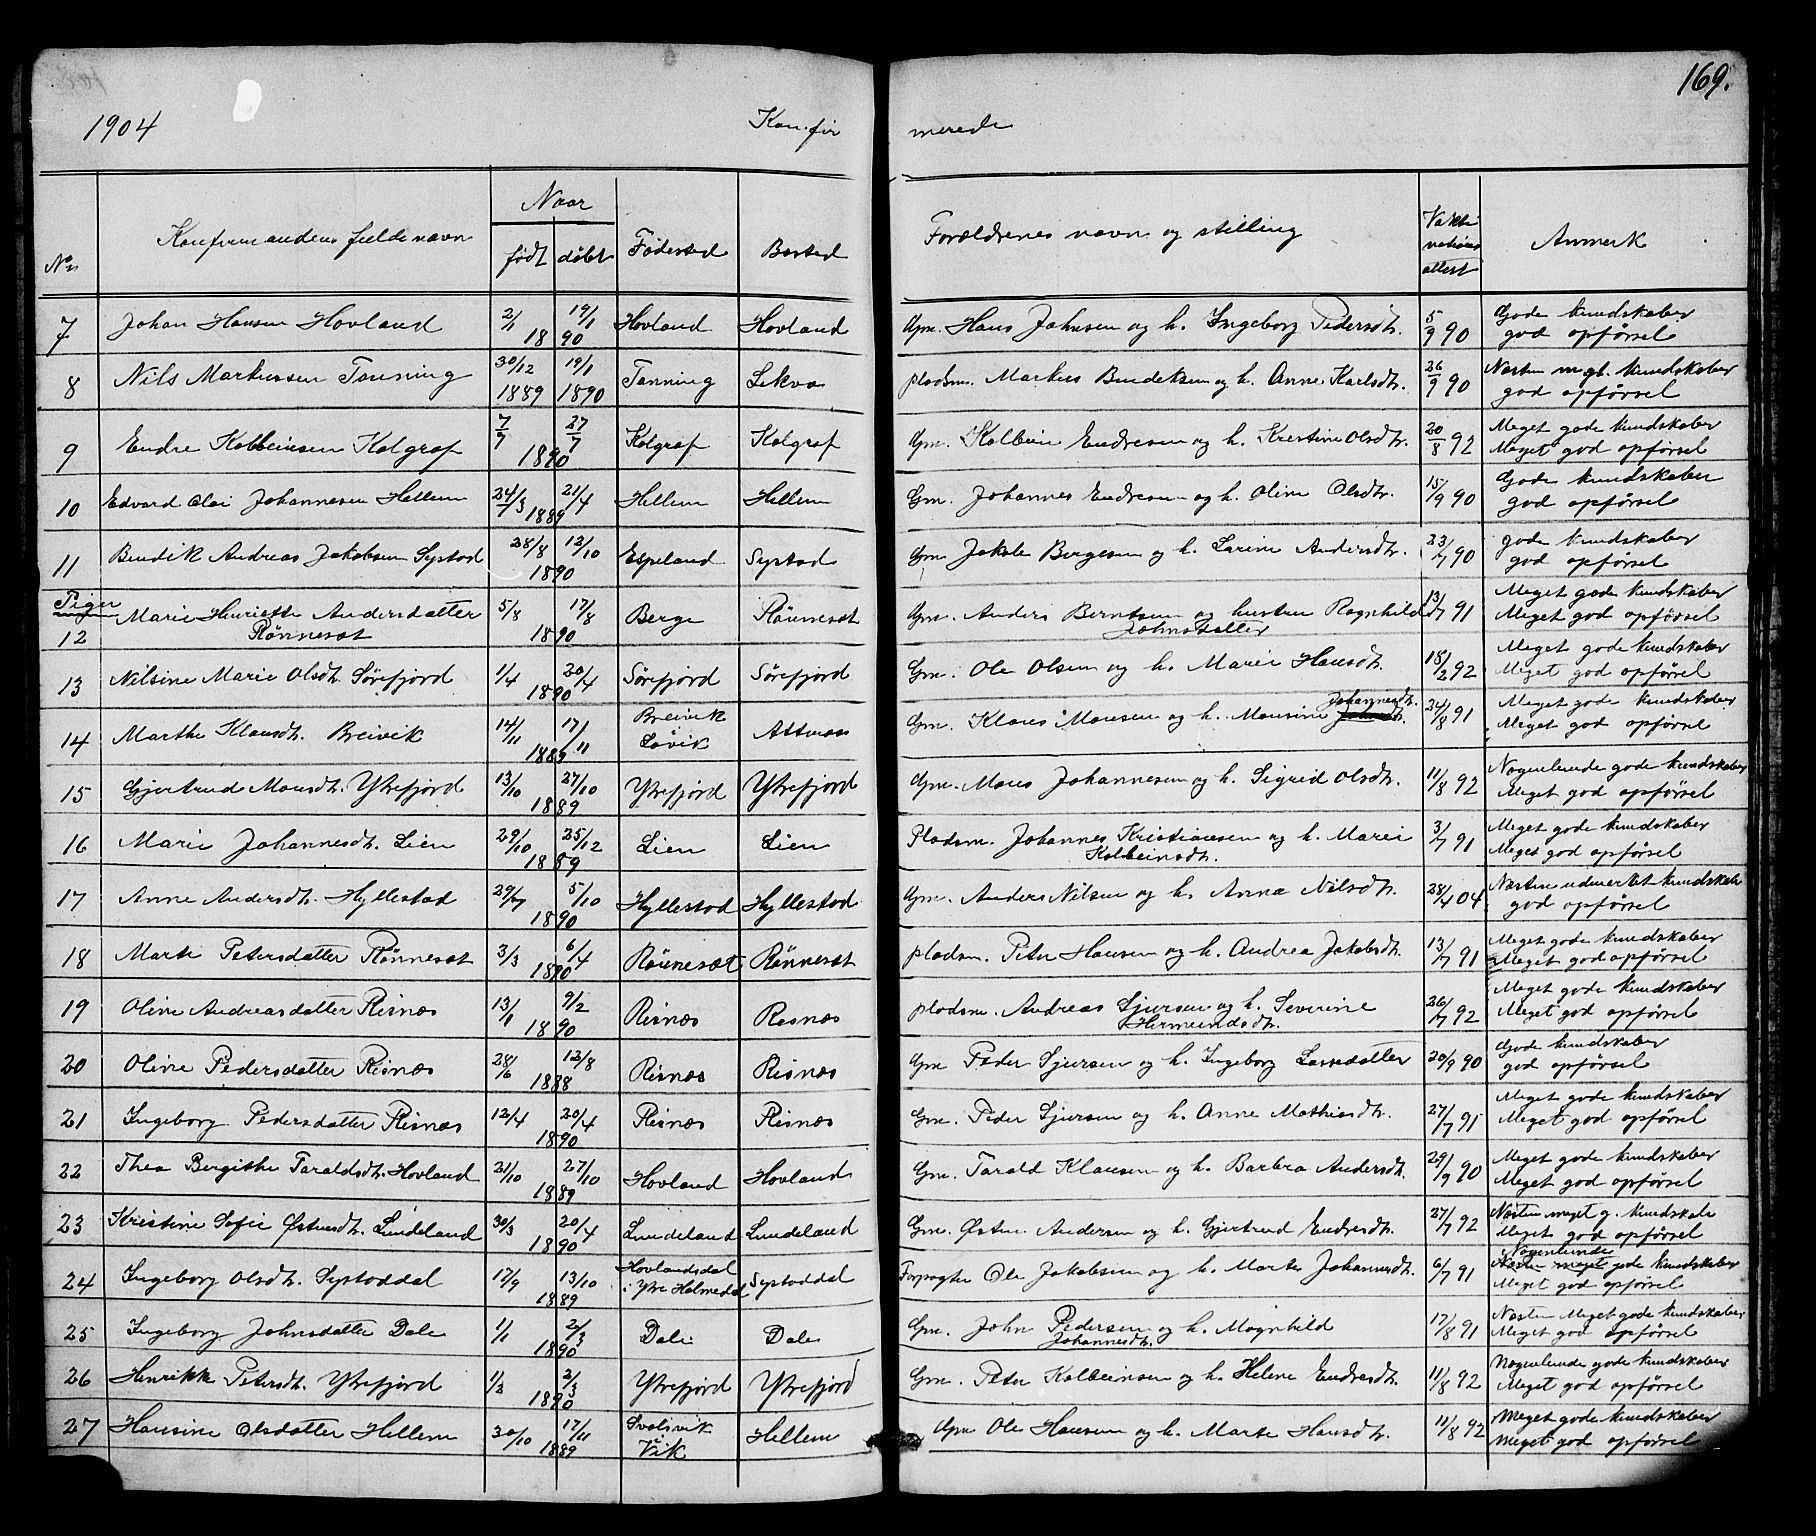 169.
1904 Konfir merede
No Konfirmandens fulde navn Naar født døbt Fødested Bosted Forældrenes navn og stilling Vakcinations attest Anmerk
7 Johan Hansen Hovland 2/1 19/1 1890 Hovland Hovland Gm. Hans Johnsen og h. Ingeborg Pedersdtr. 5/9 90 Gode kundskaber god opførsel
8 Nils Markussen Tanning 30/12 1889 19/1 1890 Tanning Lekva pladsm. Markus Bendiksen og h. Anne Karlsdtr. 26/9 90 Næsten m. gl. kundskaber god opførsel
9 Endre Kolbeinsen Kolgrof 7/7 27/7 1890 Kolgrof Kolgrof Gm. Kolbein Endresen og h. Kristine Olsdtr. 20/8 92 Meget gode kundskaber Meget god opførsel
10 Edvard Olai Johannesen Hellem 24/3 21/4 1889 Hellem Hellem Gm. Johannes Endresen og h. Oline Olsdtr. 15/9 90 Gode kundskaber god opførsel
11 Bendik Andreas Jakobsen Systad 28/8 12/10 1890 Espeland Systad Gm. Jakob Bergesen og h. Larine Andersdtr. 23/7 90 gode kundskaber god opførsel
Piger
12 Marie Henriette Andersdatter Rønneset 5/8 17/8 1890 Berge Rønneset Gm. Anders Berntsen og hustru Ragnhild Johnsdatter 13/7 91 Meget gode kundskaber Meget god opførsel
13 Nilsine Marie Olsdtr. Sørefjord 1/4 20/4 1890 Sørefjord Sørefjord Gm. Ole Olsen og h. Marie Hansdtr. 18/2 92 Meget gode kundskaber Meget god opførsel
14 Marthe Klausdtr. Breivik 14/11 17/11 1889 Breivik Løvik Gm. Klaus Monsen og h. Monsine Johannesdtr. 24/8 91 Meget gode kundskaber Meget god opførsel
15 Gjertrud Monsdtr. Ytrefjord 13/10 27/10 1889 Ytrefjord Ytrefjord Gm. Mons Johannesen og h. Sigrid Olsdtr. 11/8 92 Nogenlunde gode kundskaber Meget god opførsel
16 Marie Johannesdtr. Lien 29/10 25/12 1889 Lien Lien Pladsm. Johannes Kristiansen og h. Marie Kolbeinsdtr. 3/7 91 Meget gode kundskaber Meget god opførsel
17 Anne Andersdtr. Hyllestad 29/7 5/10 1890 Hyllestad Hyllestad Gm. Anders Nilsen og h. Anna Nilsdtr. 28/4 04 Næsten udmerket kundskab god opførsel
18 Marte Petersdatter Rønneset 3/3 6/4 1890 Rønneset Rønneset pladsm. Peter Hansen og h. Andrea Jakobsdtr. 13/7 91 Meget gode kundskaber Meget god opførsel
19 Oline Andreasdatter Risnæs 13/1 9/2 1890 Risnæs Risnæs pladsm. Andreas Sjursen og h. Severine Hermundsdtr. 26/7 92 Meget gode kundskaber Meget god opførsel
20 Oline Pedersdatter Risnæs 28/6 12/8 1888 Risnæs Risnæs Gm Peder Sjursen og h. Ingeborg Larsdatter 20/9 90 Gode kundskaber god opførsel
21 Ingeborg Pedersdatter Risnæs 12/4 20/4 1890 Risnæs Risnæs Gm. Peder Sjursen og h. Anne Mathiasdtr. 27/7 91 Meget gode kundskaber Meget god opførsel
22 Thea Bergithe Taraldsdtr. Hovland 21/10 27/10 1889 Hovland Hovland Gm. Tarald Klausen og h. Barbra Andersdtr. 29/9 90 Meget gode kundskaber Meget god opførsel
23 Kristine Sofie Østensdtr. Lundeland 30/3 20/4 1890 Lundeland Lundeland Gm. Østen Andersen og h. Gjertrud Endresdtr. 27/7 92 Næsten meget g. kundskab Meget god opførsel
24 Ingeborg Olsdtr. Systaddal 17/9 13/10 1889 Hovlandsdal i Ytre Holmedal Systaddal Forpagter Ole Jakobsen og h. Marte Johannesdtr. 6/7 91 Nogenlunde Næsten meget gode kundskaber Meget god opførsel
25 Ingeborg Johnsdatter Dale 1/1 2/3 1890 Dale Dale Gm. John Pedersen og h. Magnhild Johannesdtr. 17/8 91 Næsten Meget gode kundskaber Meget god opførsel
26 Henrikk Petersdtr. Ytrefjord 1/2 2/3 1890 Ytrefjord Ytrefjord Gm. Peter Kolbeinsen og h. Helene Endresdtr. 11/8 92 Nogenlunde gode kundskaber Meget god opførsel
27 Hansine Olsdatter Hellem 30/10 17/11 1889 Svalsvik Vik Hellem Gm Ole Hansen og h. Marte Hansdtr. 11/8 92 Meget gode kundskaber Meget god opførsel